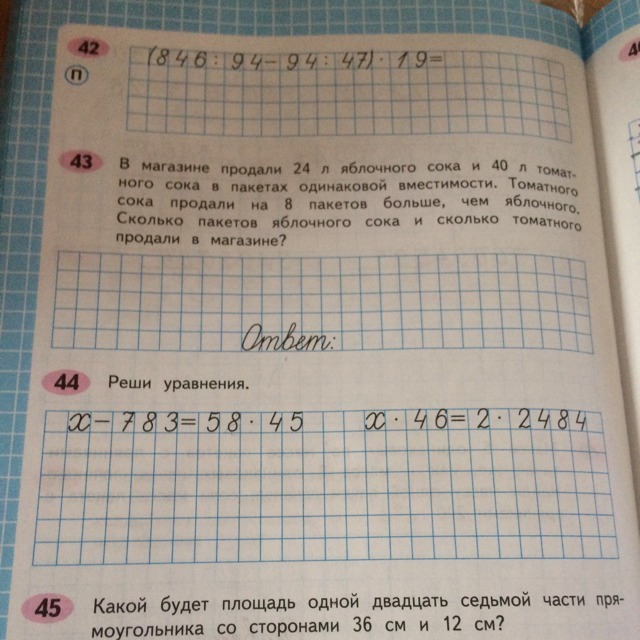 42
(846:94-94:47)·19=
П
43
В магазине продали 24 л яблочного сока и 40 л томат-
ного сока в пакетах одинаковой вместимости. Томатного
сока продали на 8 пакетов больше, чем яблочного.
Сколько пакетов яблочного сока и сколько томатного
продали в магазине?
Ответ:
44 Реши уравнения.
x-783=58·45 x·46=2·2484
45 Какой будет площадь одной двадцать седьмой части пря-
моугольника со сторонами 36 см и 12 см?